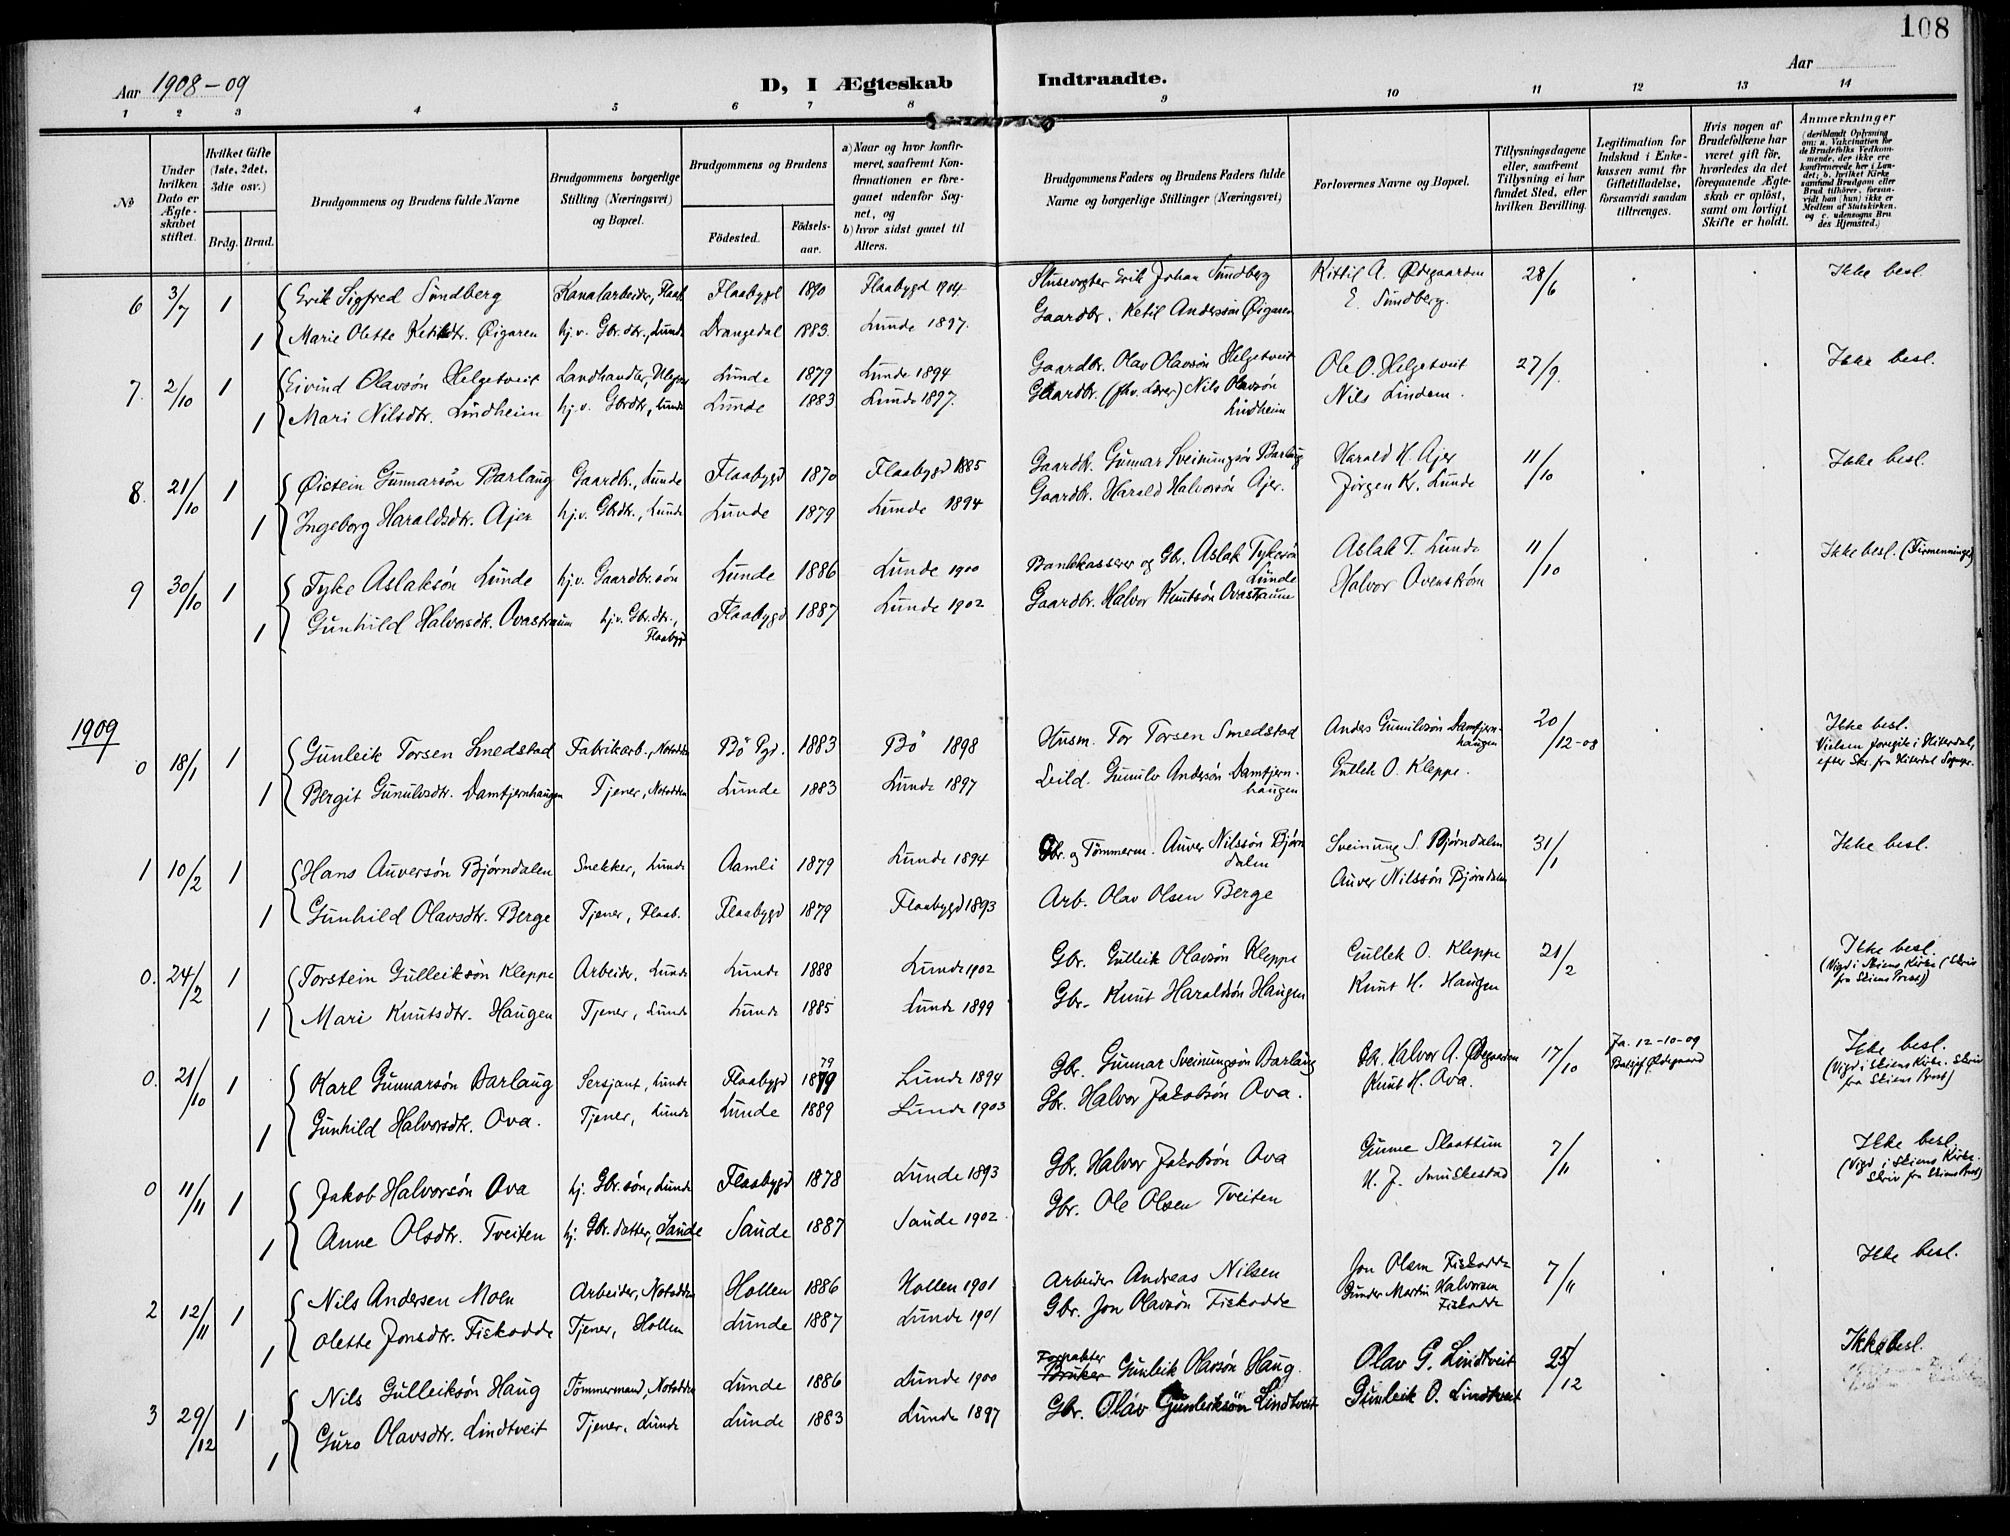 108
Aar 1908-09
D, I Ægteskab Indtraadte.
Aar
1 2 3 4 5 6 7 8 9 10 11 12 13 14
No
Under hvilken Dato er Ægteskabet stiftet.
Hvilket Gifte (1ste, 2det, 3die osv.)
Brdg. Brud.
Brudgommens og Brudens fulde Navne
Brudgommens borgerlige Stilling (Næringsvei) og Bopæl.
Brudgommens og Brudens
Fødested. Fødsels-aar.
a) Naar og hvor konfirmeret, saafremt Konfirmationen er foregaaet udenfor Sognet, og
b) hvor sidst gaaet til Alters.
Brudgommens Faders og Brudens Faders fulde Navne og borgerlige Stillinger (Næringsvei)
Forlovernes Navne og Bopæl.
Tillysningsdagene eller, saafremt Tillysning ei har fundet Sted, efter hvilken Bevilling.
Legitimation for Indskud i Enkekassen samt for Giftetilladelse, forsaavidt saadan tiltrænges.
Hvis nogen af Brudefolkene har været gift før, hvorledes da det foregaaende Ægteskab er opløst, samt om lovligt Skifte er holdt.
Anmærkninger (deriblandt Oplysning om: a. Vakcination for de Brudefolks Vedkommende, der ikke ere konfirmerede her i Landet; b. hvilket Kirkesamfund Brudgom eller Brud tilhører, forsaavidt han (hun) ikke er Medlem af Statskirken, og c. udensogns Brudes Hjemsted.)
6 3/7 1 Erik Sigfred Sundberg Kanalarbeider, Flaab. Flaabygd 1890 Flaabygd 1904. Slusevogter Erik Johan Sundberg Kittil A. Ødegaarden 28/6 Ikke besl.
1 Marie Olette Ketilsdtr. Øigaren hj.v. Gbr.dtr., Lunde Drangedal 1883. Lunde 1897. Gaardbr. Ketil Andersson Øigaren E. Sundberg.
7. 2/10 1 Eivind Olavsön Helgetveit Landhandler, Ulefos Lunde 1879 Lunde 1894 Gaardbr. Olav Olavsön Helgetveit Ole O. Helgetveit 27/9. Ikke besl.
1 Mari Nilsdtr. Lindheim hj.v. Gbrdtr., Lunde Lunde 1883 Lunde 1897. Gaardbr. (fhv. Lærer) Nils Olavsön Lindheim Nils Lindem.
8. 21/10 1 Øistein Gunnarsön Barlaug Gaardbr., Lunde Flaabygd 1870 Flaabygd 1885 Gaardbr. Gunnar Sveinungsön Barlaug Harald H. Ajer 11/10 Ikke besl.
1 Ingeborg Haraldsdtr. Ajer hj.v. Gbrdtr., Lunde Lunde 1879 Lunde 1894 Gaardbr. Harald Halvorsön Ajer. Jörgen Kr. Lunde
9 30/10 1 Tyke Aslaksön Lunde hj.v. Gaardbr.sön Lunde 1886 Lunde 1900 Bankkasserer og Gbr. Aslak Tykesön Lunde Aslak T. Lunde 11/10 Ikke besl. (Firmenninger)
1 Gunhild Halvorsdtr. Ovastraum hj.v. Gbr.dtr., Flaabygd Flaabygd 1887 Lunde 1902 Gaardbr. Halvor Knutsön Ovastraum Halvor Ovenstrøm
1909
0 18/1 1 Gunleik Torsen Smedstad Fabrikarb., Notodden Bö Pgd. 1883 Bö 1898 Husm. Tor Torsen Smedstad Anders Gunulvsön Damtjernhaugen 20/12-08 Ikke besl. Vielsen foregik i Hiterdal, efter Skr. fra Hiterdal Sognepr.
1 Bergit Gunulvsdtr. Damtjernhaugen Tjener, Notodden Lunde 1883 Lunde 1897 Leild. Gunulv Andersön Damtjernhaugen Gullek O. Kleppe.
1 10/2 1 Hans Auversön Bjørndalen Snekker, Lunde Aamli 1879 Lunde 1894 Gbr. og Tömmerm. Auver Nilssön Bjørndalen Sveinung S. Bjørndalen 31/1 Ikke besl.
1 Gunhild Olavsdtr. Berge Tjener, Flaab. Flaabygd 1879 Flaabygd 1893 Arb. Olav Olsen Berge Auver Nilssön Bjørndalen
0. 24/2 1 Torstein Gulleiksön Kleppe Arbeider, Lunde Lunde 1888 Lunde 1902 Gbr. Gulleik Olavsön Kleppe Gullek O. Kleppe 21/2 Ikke besl. (Vigd i Skiens Kirke (Skriv fra Skiens Prest))
1 Mari Knutsdtr. Haugen Tjener, Lunde Lunde 1885 Lunde 1899 Gbr. Knut Haraldsön Haugen Knut H. Haugen
0. 21/10 1 Karl Gunnarsön Barlaug Sersjant, Lunde Flaabygd 1879 79 Lunde 1894 Gbr. Gunnar Sveinungsön Barlaug Gbr. Halvor A. Ødegaarden 17/10 Ja. 12-10-09 Ødegaard Ikke besl. (Vigd i Skiens Kirke. Skriv fra Skiens Prest)
1 Gunhild Halvorsdtr. Ova. Tjener, Lunde Lunde 1889 Lunde 1903 Gbr. Halvor Jakobsön Ova. Knut H. Ova.
0 11/11 1 Jakob Halvorsön Ova hj. Gbr.sön, Lunde Flaabygd 1878 Lunde 1893 Gbr. Halvor Jakobsön Ova Gunne Slaattum 7/11 Ikke besl. (Vigd i Skiens Kirke. Skriv fra Skiens Prest)
1 Anne Olsdtr. Tveiten hj. Gbr. datter, Saude Saude 1887 Saude 1902 Gbr. Ole Olsen Tveiten H. J. Smukkestad
2 12/11 1 Nils Andersen Moen Arbeider, Notodden Hollen 1886 Hollen 1901 Arbeider Andreas Nilsen Jon Olsen Fiskodde 7/11 Ikke besl.
1 Olette Jonsdtr. Fiskodde Tjener, Hollen Lunde 1887 Lunde 1901 Gbr. Jon Olavsön Fiskodde Gunder Martin Halvorsen Fiskodde
3 29/12 1 Nils Gulleiksön Haug Tömmermand, Notodden Lunde 1886 Lunde 1900 Forpakter Bruker Gunleik Olavsön Haug. Olav G. Lindtveit 25/12 Ikke besl.
1 Guro Olavsdtr. Lindtveit Tjener, Lunde Lunde 1883 Lunde 1897 Gbr. Olav Gunleiksön Lindtveit Gunleik O. Lindtveit